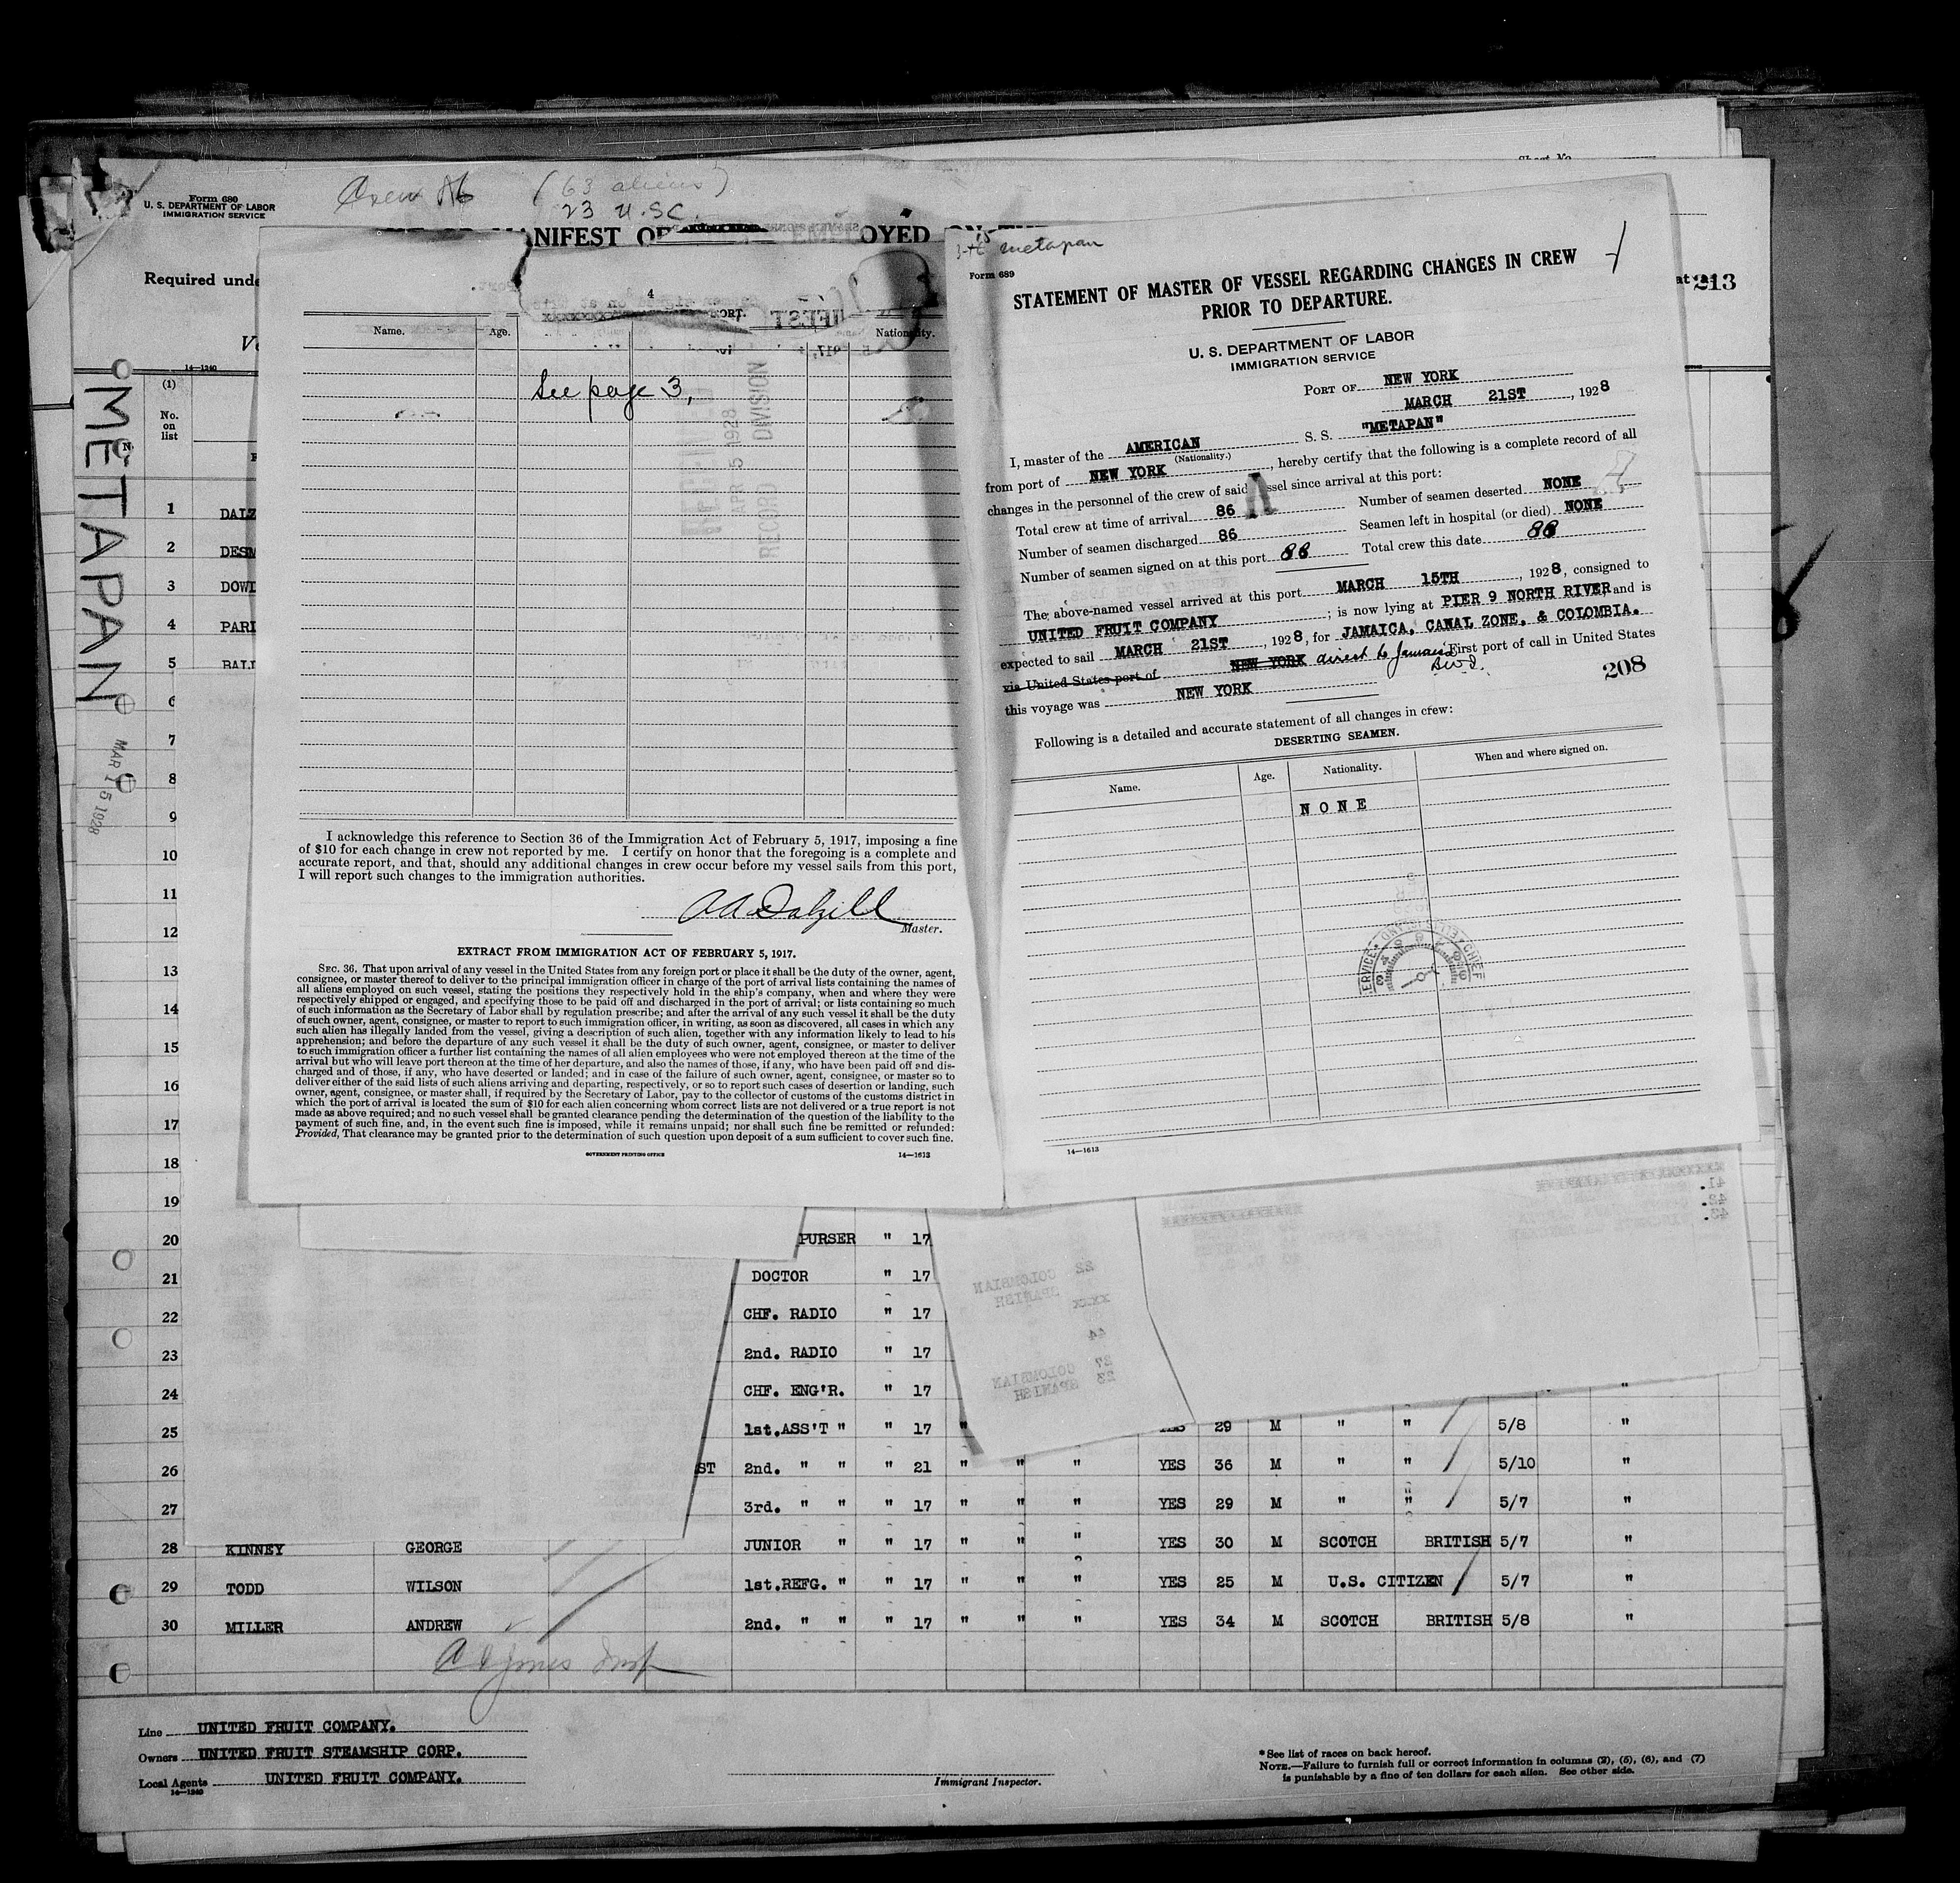 Form 680
U. S. DEPARTMENT OF LABOR
IMMIGRATION SERVICE
Crew 86 (63 aliens)
23 U.S.C.
MANIFEST OF
OYED
Required unde
213
14—1240
(1)
No.
on
list
METAPAN
MAR 15 1928
1 DALZ
2 DESM
3 DOWL
4 PARI
5
6
7
8
9
10
11
12
13
14
15
16
17
18
19
20 PURSER " 17
21 DOCTOR " 17
22 CHF. RADIO " 17
23 2nd. RADIO " 17
24 CHF. ENG'R. " 17
25 1st.ASS'T " " 17 " 29 M " " 5/8 "
26 ST 2nd. " " " 21 " " " YES 36 M " " 5/10 "
27 3rd. " " " 17 " " " YES 29 M " " 5/7 "
28 KINNEY GEORGE JUNIOR " " 17 " " " YES 30 M SCOTCH BRITISH 5/7 "
29 TODD WILSON 1st.REFG. " " 17 " " " YES 25 M U.S. CITIZEN 5/7 "
30 MILLER ANDREW 2nd. " " " 17 " " " YES 34 M SCOTCH BRITISH 5/8 "
Line UNITED FRUIT COMPANY.
Owners UNITED FRUIT STEAMSHIP CORP.
Local Agents UNITED FRUIT COMPANY.
14—1240
Immigrant Inspector.
*See list of races on back hereof.
NOTE.—Failure to furnish full or correct information in columns (2), (5), (6), and (7)
is punishable by a fine of ten dollars for each alien. See other side.
4
ORT.
Name. Age. Nationality.
See page 3,
APR 5 1928
RECORD DIVISION
I acknowledge this reference to Section 36 of the Immigration Act of February 5, 1917, imposing a fine
of $10 for each change in crew not reported by me. I certify on honor that the foregoing is a complete and
accurate report, and that, should any additional changes in crew occur before my vessel sails from this port,
I will report such changes to the immigration authorities.
Master.
EXTRACT FROM IMMIGRATION ACT OF FEBRUARY 5, 1917.
SEC. 36. That upon arrival of any vessel in the United States from any foreign port or place it shall be the duty of the owner, agent,
consignee, or master thereof to deliver to the principal immigration officer in charge of the port of arrival lists containing the names of
all aliens employed on such vessel, stating the positions they respectively hold in the ship's company, when and where they were
respectively shipped or engaged, and specifying those to be paid off and discharged in the port of arrival; or lists containing so much
of such information as the Secretary of Labor shall by regulation prescribe; and after the arrival of any such vessel it shall be the duty
of such owner, agent, consignee, or master to report to such immigration officer, in writing, as soon as discovered, all cases in which any
such alien has illegally landed from the vessel, giving a description of such alien, together with any information likely to lead to his
apprehension; and before the departure of any such vessel it shall be the duty of such owner, agent, consignee, or master to deliver
to such immigration officer a further list containing the names of all alien employees who were not employed thereon at the time of the
arrival but who will leave port thereon at the time of her departure, and also the names of those, if any, who have been paid off and dis-
charged and of those, if any, who have deserted or landed; and in case of the failure of such owner, agent, consignee, or master so to
deliver either of the said lists of such aliens arriving and departing, respectively, or so to report such cases of desertion or landing, such
owner, agent, consignee, or master shall, if required by the Secretary of Labor, pay to the collector of customs of the customs district in
which the port of arrival is located the sum of $10 for each alien concerning whom correct lists are not delivered or a true report is not
made as above required; and no such vessel shall be granted clearance pending the determination of the question of the liability to the
payment of such fine, and, in the event such fine is imposed, while it remains unpaid; nor shall such fine be remitted or refunded:
Provided, That clearance may be granted prior to the determination of such question upon deposit of a sum sufficient to cover such fine.
GOVERNMENT PRINTING OFFICE 14—1613
Metapan
Form 689
STATEMENT OF MASTER OF VESSEL REGARDING CHANGES IN CREW
PRIOR TO DEPARTURE.
U. S. DEPARTMENT OF LABOR
IMMIGRATION SERVICE
PORT OF NEW YORK
MARCH 21ST, 1928
I, master of the AMERICAN S. S. "METAPAN"
(Nationality.)
from port of NEW YORK, hereby certify that the following is a complete record of all
changes in the personnel of the crew of said vessel since arrival at this port:
Total crew at time of arrival 86 Number of seamen deserted NONE
Number of seamen discharged 86 Seamen left in hospital (or died) NONE
Number of seamen signed on at this port 88 Total crew this date 88
The above-named vessel arrived at this port MARCH 15TH, 1928, consigned to
UNITED FRUIT COMPANY; is now lying at PIER 9 NORTH RIVER and is
expected to sail MARCH 21ST, 1928, for JAMAICA, CANAL ZONE, & COLOMBIA.
via United States port of NEW YORK direct to Jamaica First port of call in United States
this voyage was NEW YORK
208
Following is a detailed and accurate statement of all changes in crew:
DESERTING SEAMEN.
Name. Age. Nationality. When and where signed on.
NONE
14—1613